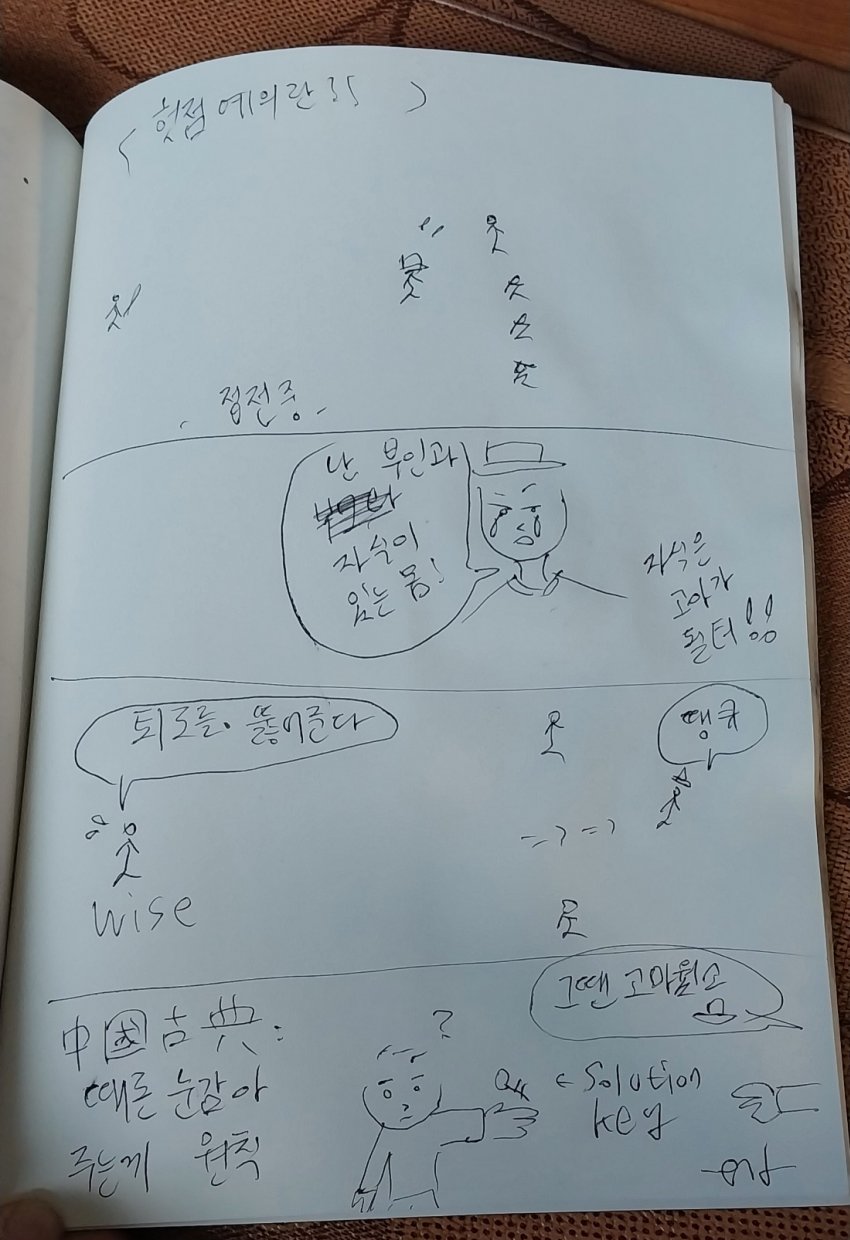 < 헛점 예의란 35 >
접전중.
난 부인과
자식이
있는 몸!
자식은
고아가
될터!!
퇴로를 뚫어준다
땡큐
=> =>
wise
그땐 고마웠소
中國古典:
때론 눈감아
주는게 원칙
?
← Solution
key